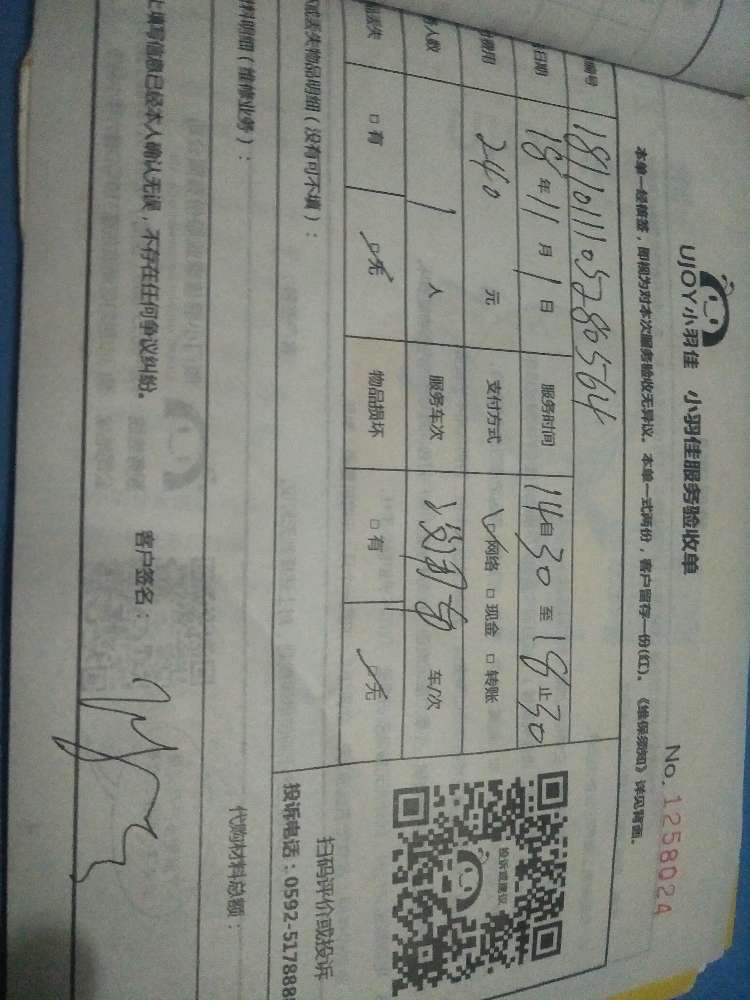 UJOY小羽佳 小羽佳服务验收单
No. 1258024
本单一经核签，即视为对本次服务验收无异议。本单一式两份，客户留存一份(红)。《维保须知》详见背面。
编号 1811011105280564
日期 18年11月1日 服务时间 14自30至18止30
费用 240 元 支付方式 □网络 □现金 □转账
人数 1 人 服务车次 车/次
丢失 □有 □无 物品损坏 □有 □无
或丢失物品明细（没有可不填）：
料明细（维修业务）：
代购材料总额：
上填写信息已经本人确认无误，不存在任何争议纠纷。 客户签名：
投诉或建议
扫码评价或投诉
投诉电话：0592-517888